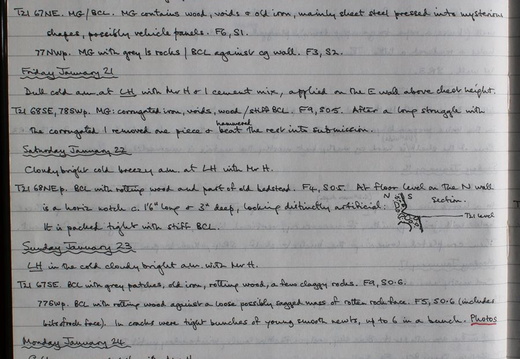 T21 67NE. MG/BCL. MG contains wood, voids & old iron, mainly sheet steel pressed into mysterious
shapes, possibly vehicle panels. F6, S1.
77NWp. MG with grey ls rocks / BCL against cg wall. F3, S2.
Friday January 21
Dull cold am. at LH with Mr H & 1 cement mix, applied on the E wall above chest height.
T21 68SE, 78SWp. MG: corrugated iron, voids, wood / stiff BCL. F9, S0.5. After a long struggle with
the corrugated I removed one piece & hammered beat the rest into submission.
Saturday January 22
Cloudy bright cold breezy am. at LH with Mr H.
T21 68NEp. BCL with rotting wood and part of old bedstead. F4, S0.5. At floor level on the N wall
is a horiz notch c. 1'6" long & 3" deep, looking distinctly artificial:
N S Section.
T21 level
It is packed tight with stiff BCL.
Sunday January 23
LH in the cold cloudy bright am. with Mr H.
T21 67SE. BCL with grey patches, old iron, rotting wood, a few claggy rocks. F9, S0.6.
77SWp. BCL with rotting wood against a loose possibly sagged mass of rotten rock face. F5, S0.6 (includes
bits of rock face). In cracks were tight bunches of young smooth newts, up to 6 in a bunch. Photos
Monday January 24